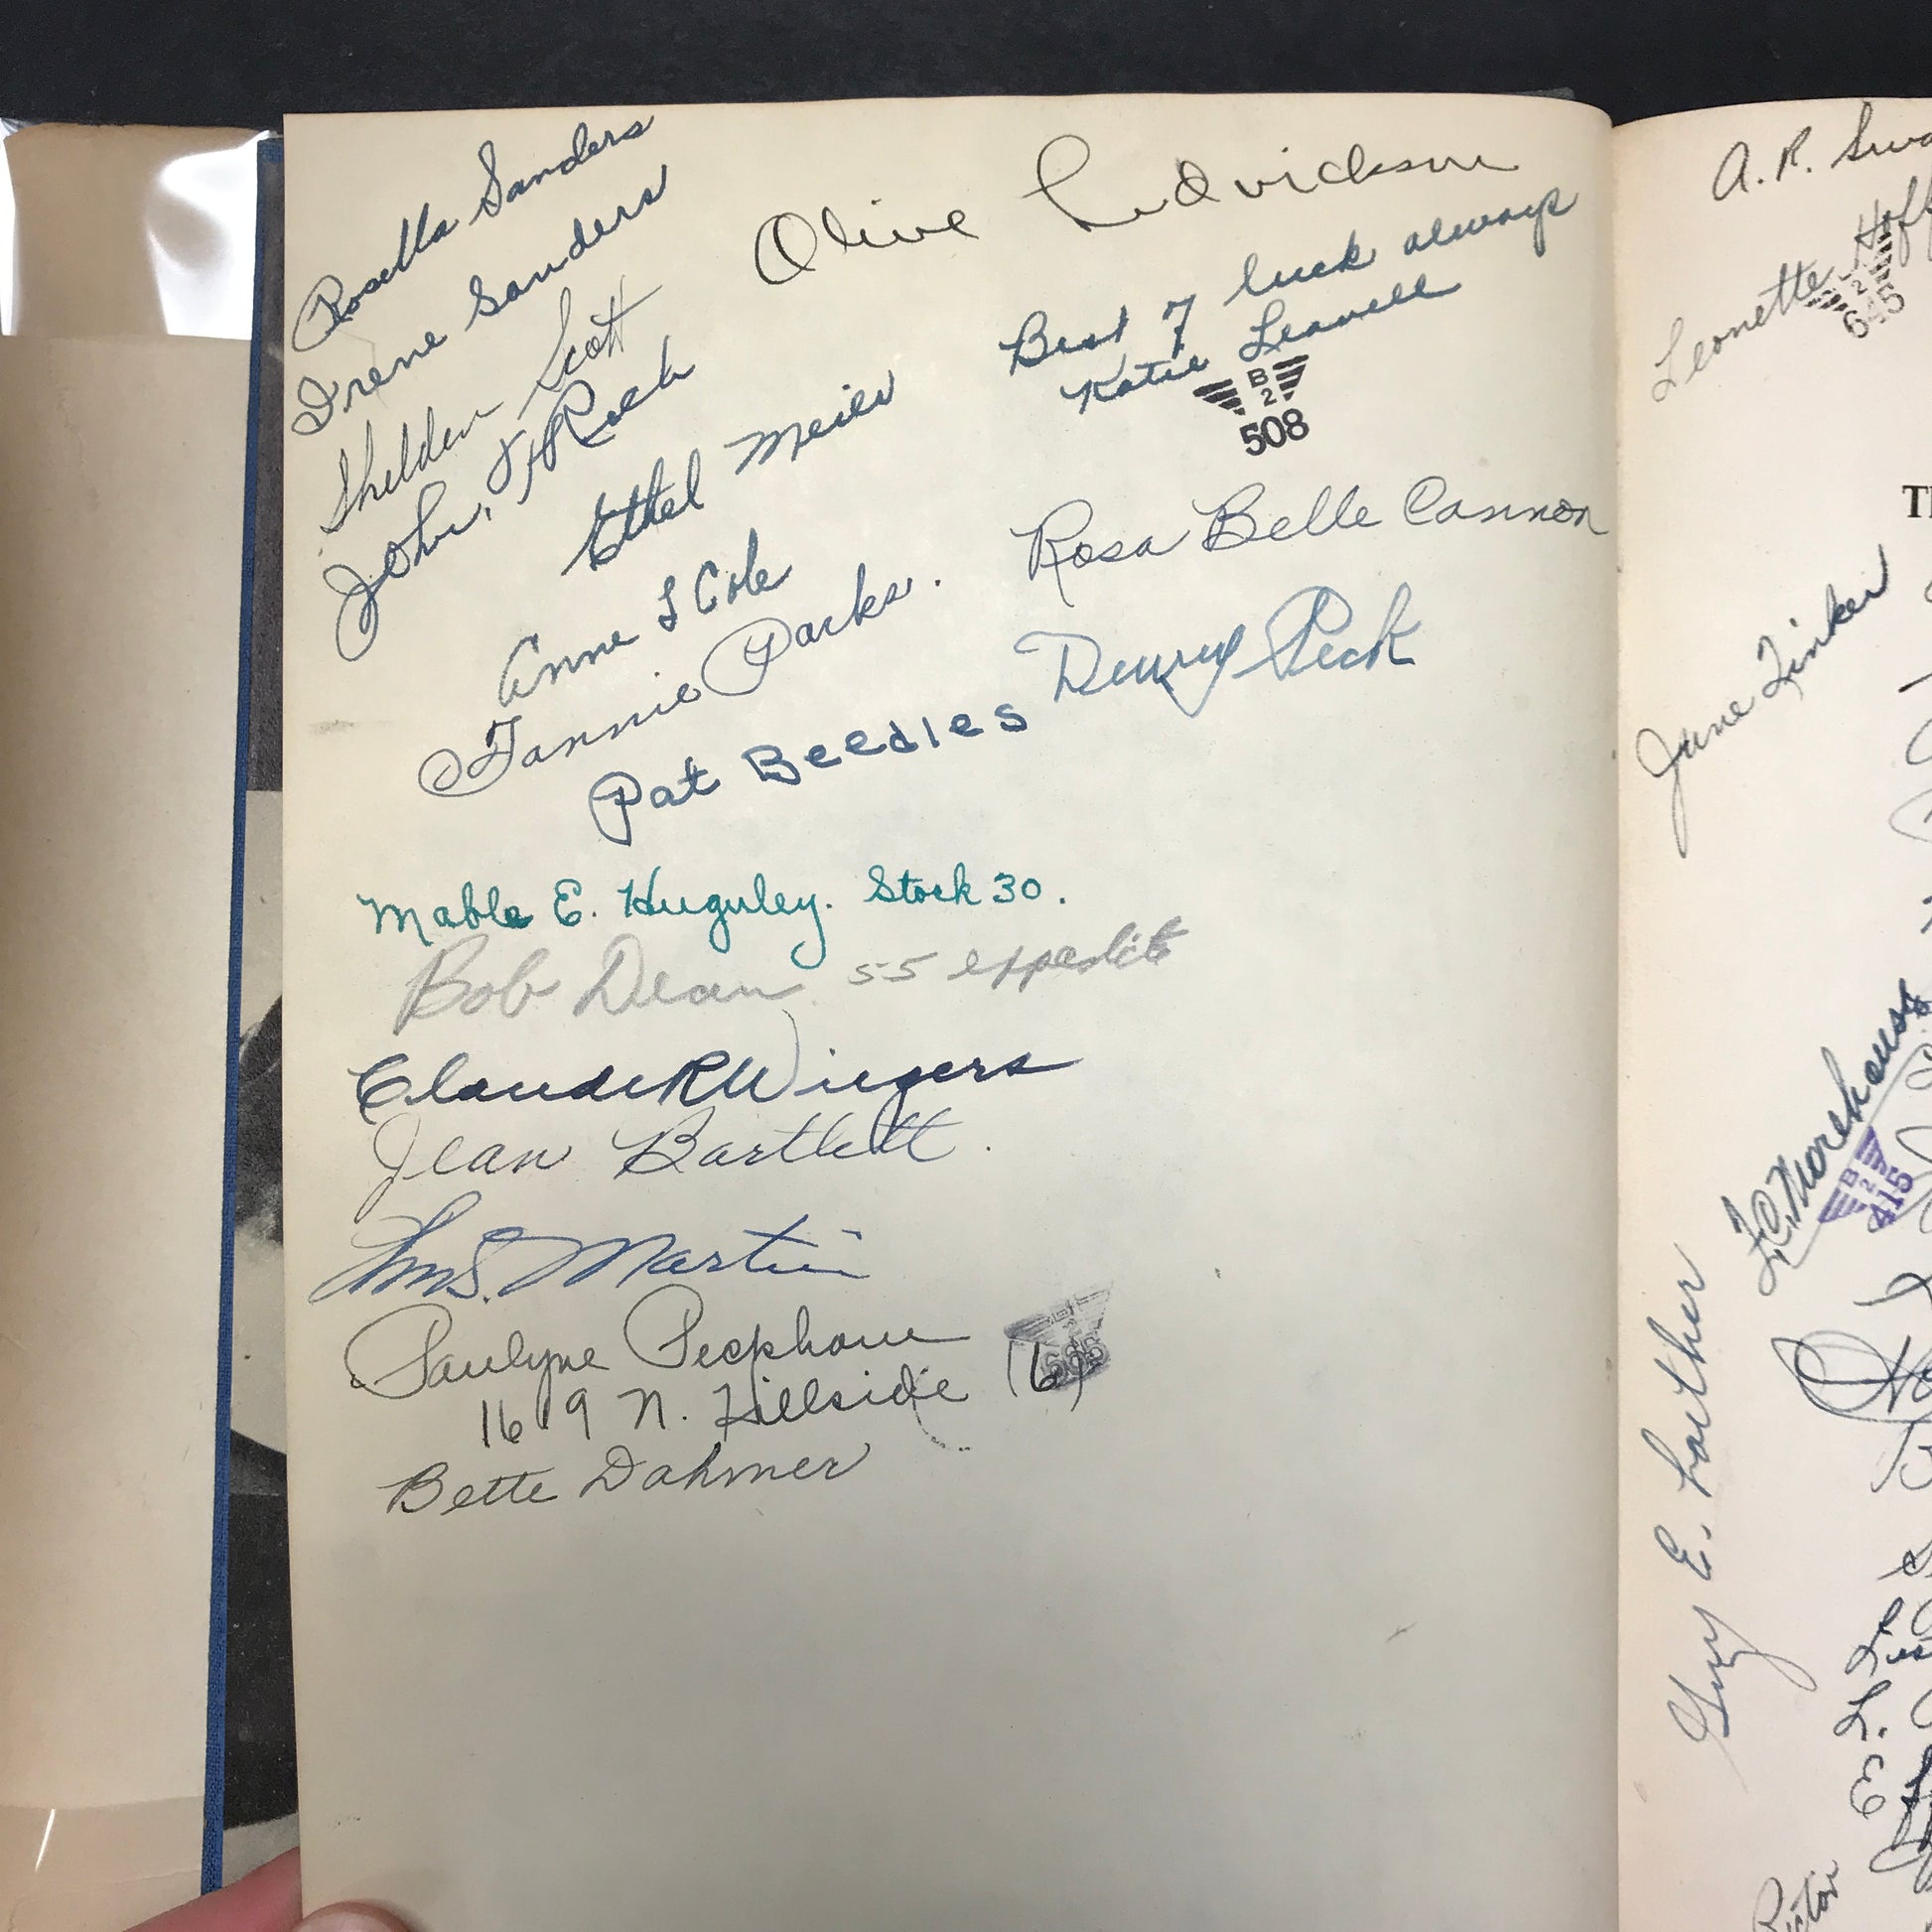 Rosella Sanders
Irene Sanders
Shelden Scott
John, H Roch
Olive Ludvickson
Best of luck always
Katie Leavell
B
2
508
Ethel Meier
Anne L Cole
Fannie Parks.
Rosa Belle Cannon
Peck
Pat Beedles
Mable E. Huguley. Stock 30.
Bob Dean 55 expedite
Claude R Wiegers
Jean Bartlett.
Wm S. Martin
Paulyne Pecphone
1619 N. Hillside (16)
Bette Dahmer
A. R.
Leonette
2
645
June Tinker
L C Morehouse
B
2
415
Guy E. Lowther
L.
E